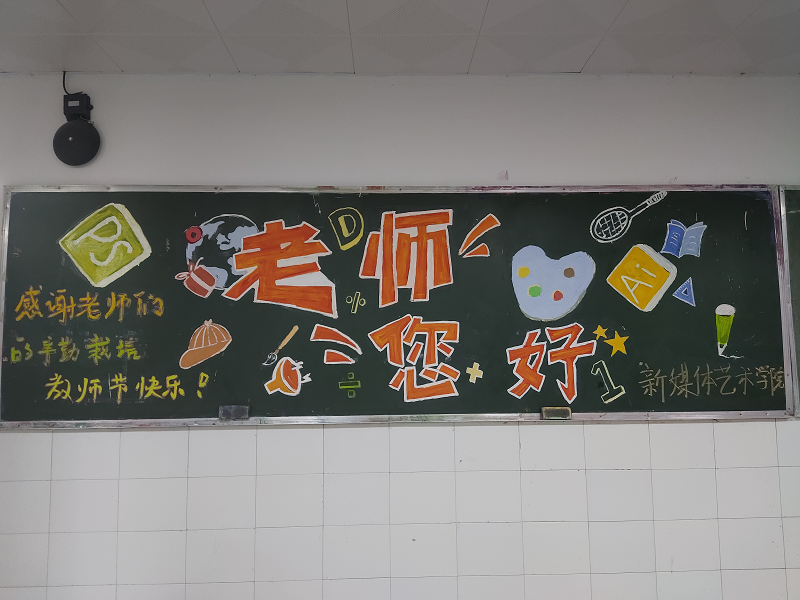 PS
感谢老师们
的辛勤栽培
教师节快乐!
老师
您好
D
%
÷
+
Ai
1
新媒体艺术学院